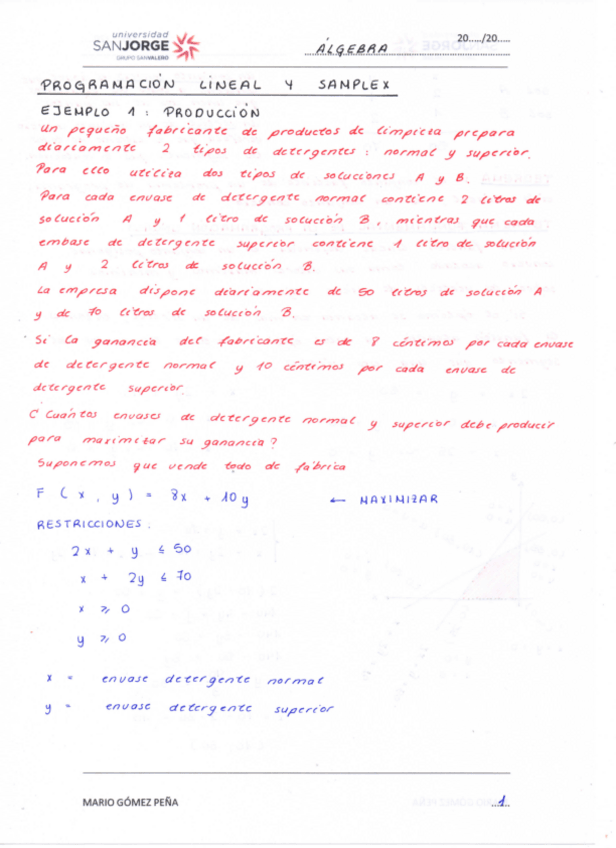 universidad
SANJORGE
GRUPO SANVALERO
ÁLGEBRA
20...../20.....
PROGRAMACIÓN LINEAL Y SAMPLEX
EJEMPLO 1 : PRODUCCIÓN
Un pequeño fabricante de productos de limpieza prepara
diariamente 2 tipos de detergentes : normal y superior.
Para ello utiliza dos tipos de soluciones A y B.
Para cada envase de detergente normal contiene 2 litros de
solución A y 1 litro de solución B, mientras que cada
embase de detergente superior contiene 1 litro de solución
A y 2 litros de solución B.
La empresa dispone diariamente de 50 litros de solución A
y de 70 litros de solución B.
Si la ganancia del fabricante es de 8 céntimos por cada envase
de detergente normal y 10 céntimos por cada envase de
detergente superior.
¿Cuántos envases de detergente normal y superior debe producir
para maximizar su ganancia?
Suponemos que vende todo de fábrica
F ( x , y ) = 8x + 10y ← MAXIMIZAR
RESTRICCIONES :
2x + y ≤ 50
x + 2y ≤ 70
x ≥ 0
y ≥ 0
x = envase detergente normal
y = envase detergente superior
MARIO GÓMEZ PEÑA
...1..